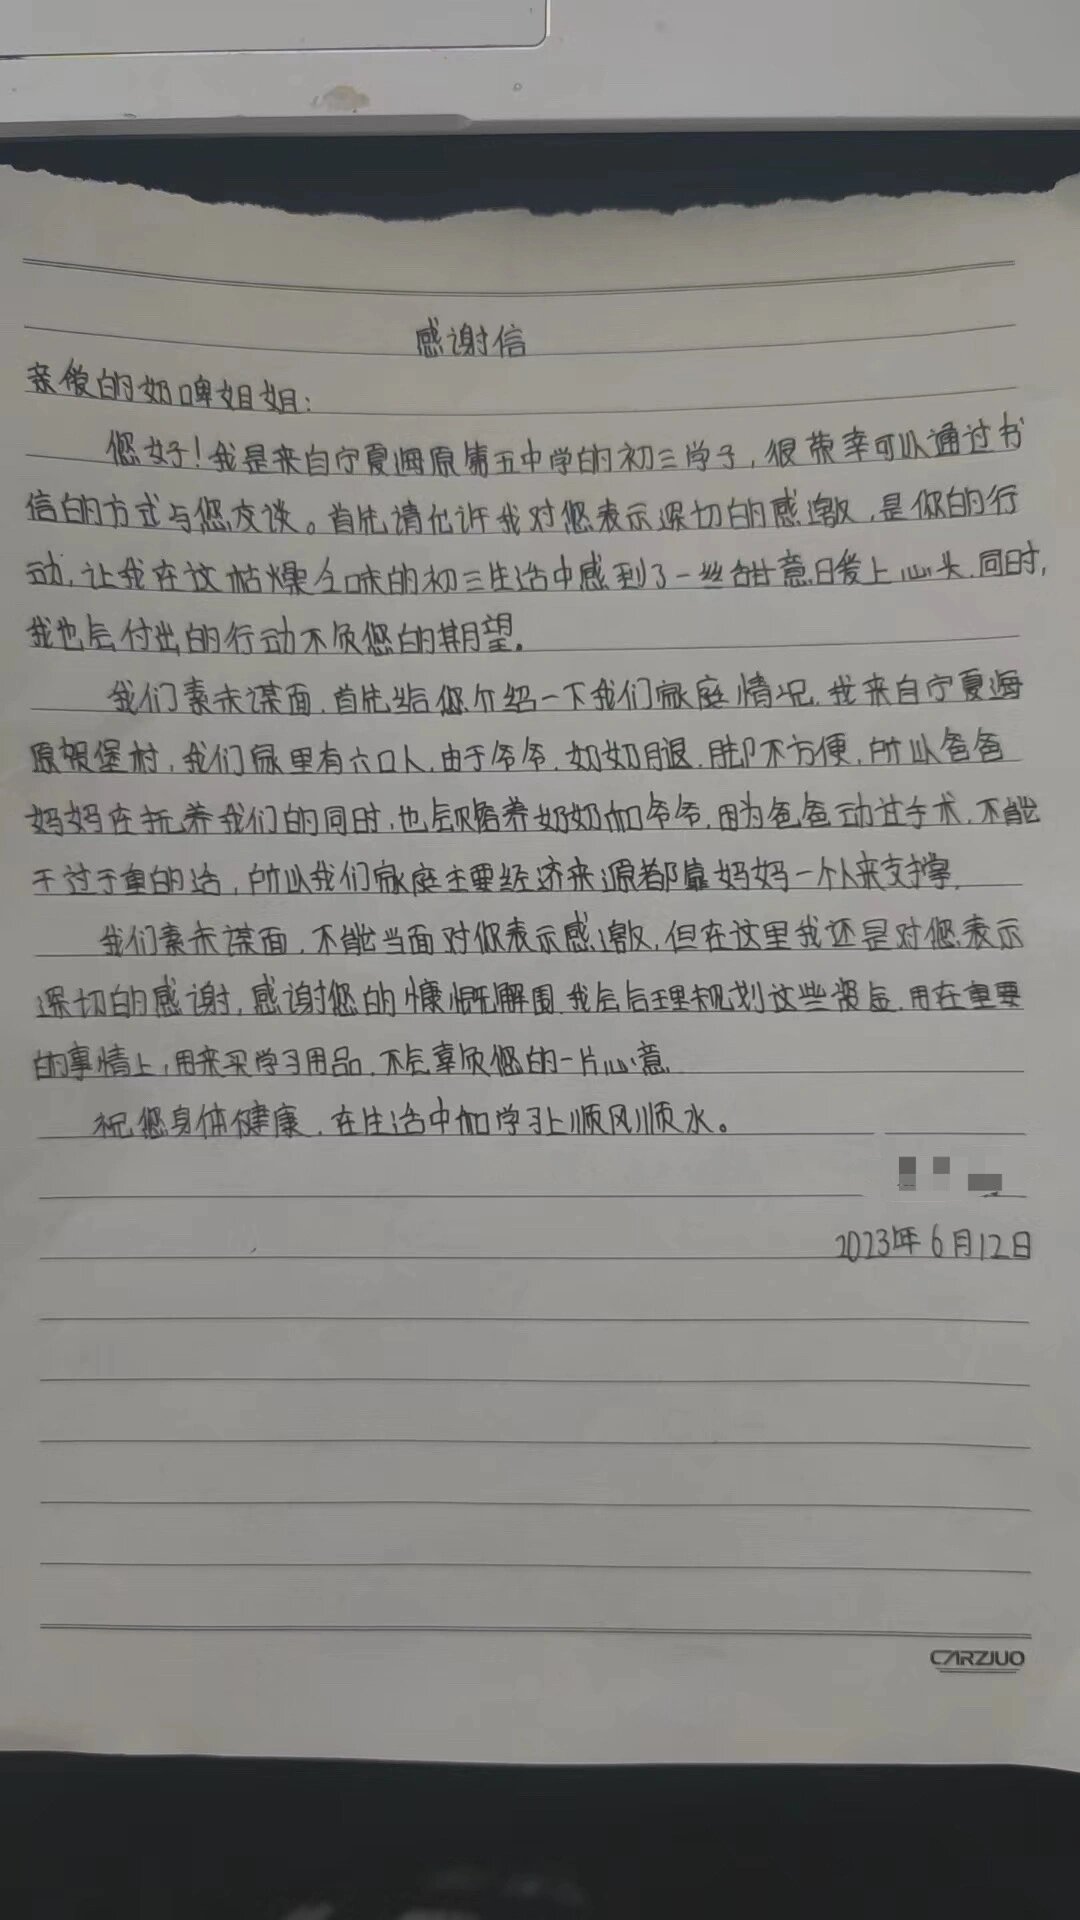 感谢信
亲爱的奶啤姐姐：
您好！我是来自宁夏海原第五中学的初三学子，很荣幸可以通过书
信的方式与您交谈。首先请允许我对您表示深切的感激，是你的行
动，让我在这枯燥乏味的初三生活中感到了一丝甜意日爱上心头，同时，
我也会付出的行动不负您的期望。
我们素未谋面，首先给您介绍一下我们家庭情况，我来自宁夏海
原贺堡村，我们家里有六口人，由于爷爷、奶奶腿、脚不方便，所以爸爸
妈妈在抚养我们的同时，也会赡养奶奶和爷爷，因为爸爸动过手术，不能
干过于重的活，所以我们家庭主要经济来源都靠妈妈一个人来支撑，
我们素未谋面，不能当面对你表示感激，但在这里我还是对您表示
深切的感谢，感谢您的慷慨解围，我会合理规划这些资金，用在重要
的事情上，用来买学习用品，不会辜负您的一片心意，
祝您身体健康，在生活中和学习上顺风顺水。
2023年6月12日
CARZJUO